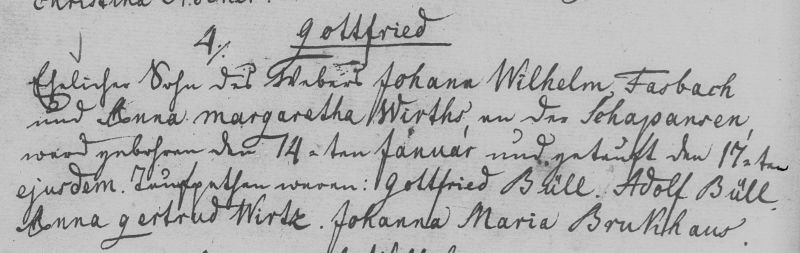 4. Gottfried
Ehelicher Sohn des Webers Johann Wilhelm Fasbach
und Anna margaretha Wirths, an der Schapansen,
ward gebohren den 14=ten Januar und getauft den 17=ten
ejusdem. Taufpathen waren: Gottfried Büll. Adolf Büll.
Anna gertrud Wirtz. Johanna Maria Brukhaus.